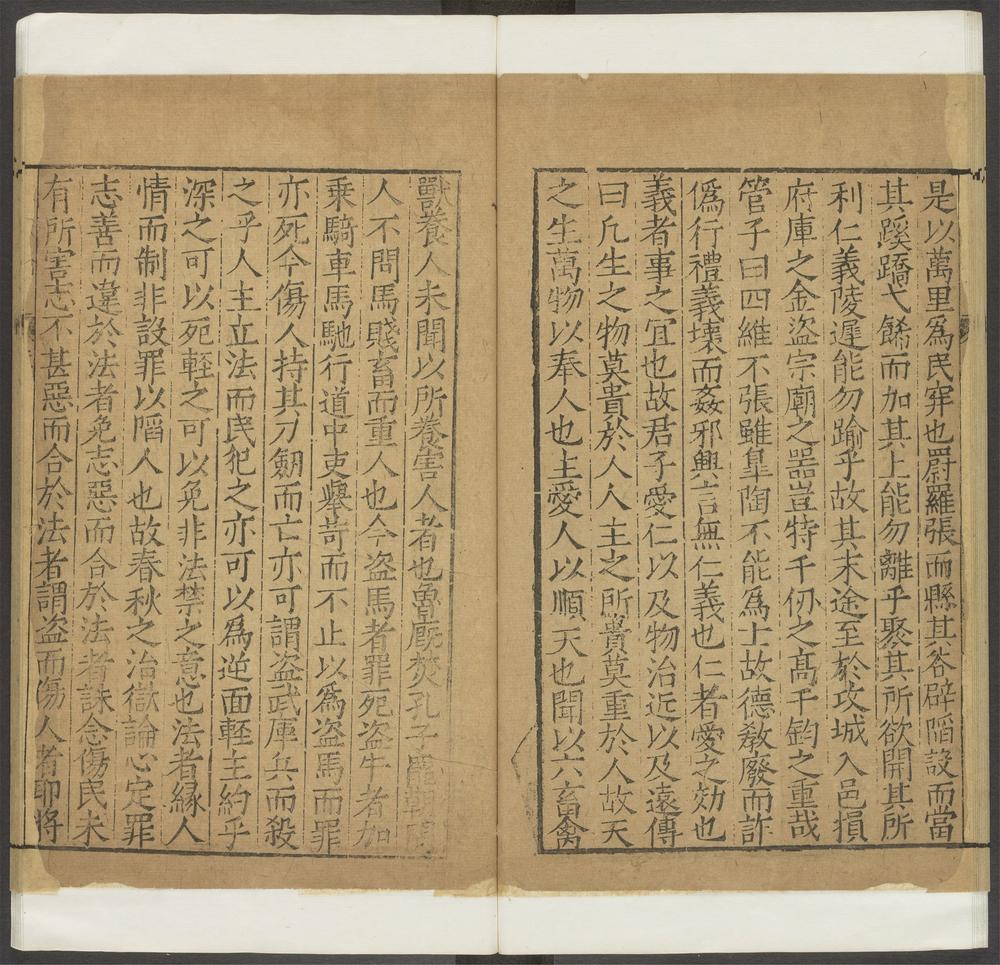 是以萬里爲民穽也罻羅張而縣其谷辟陷設而當
其蹊蹻弋餙而加其上能勿離乎聚其所欲開其所
利仁義陵遲能勿踰乎故其末途至於攻城入邑損
府庫之金盜宗廟之噐豈特千仞之高千鈞之重哉
管子曰四維不張雖臯陶不能爲士故德敎廢而詐
僞行禮義壞而姦邪興言無仁義也仁者愛之効也
義者事之宜也故君子愛仁以及物治近以及遠傳
曰凢生之物莫貴於人人主之所貴莫重於人故天
之生萬物以奉人也主愛人以順天也聞以六畜禽
獸養人未聞以所養害人者也魯厩焚孔子罷朝問
人不問馬賤畜而重人也今盗馬者罪死盗牛者加
乗騎車馬馳行道中吏舉苛而不止以爲盗馬而罪
亦死今傷人持其刀劒而亡亦可謂盗武庫兵而殺
之乎人主立法而民犯之亦可以爲逆面輊主約乎
深之可以死輊之可以免非法禁之意也法者縁人
情而制非設罪以陷人也故春秋之治獄論心定罪
志善而違於法者免志惡而合於法者誅念傷民未
有所害志不甚惡而合於法者謂盗而傷人者耶将